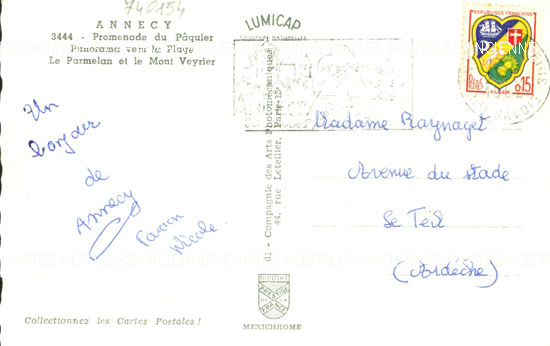 740154
ANNECY
3444 - Promenade du Pâquier
Panorama vers la Plage
Le Parmelan et le Mont Veyrier
Un
bonjour
de
Annecy
Nicole
Collectionnez les Cartes Postales !
LUMICAP
61 - Compagnie des Arts Photomécaniques
44, rue Letellier, Paris-15e
DIPLOME
PRESTIGE
FRANCE
MEXICHROME
REPUBLIQUE FRANÇAISE
POSTES
ALGER
0,15
Madame Raynaget
Avenue du stade
Le Teil
(Ardèche)
CARTES POSTALES ANCIENNES CARTES POSTALES ANCIENNES